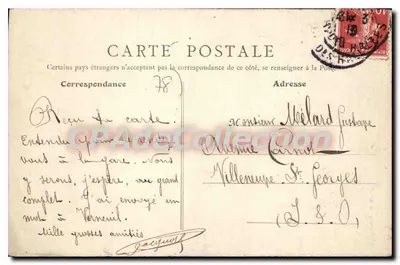 CARTE POSTALE
Certains pays étrangers n'acceptent pas la correspondance de ce côté, se renseigner à la Poste
Correspondance
78
Adresse
Reçu ta carte.
Entendu pour
vous à la gare. Nous
y serons, j'espère, au grand
complet. J'ai envoyé un
mot à Verneuil.
Mille grosses amitiés
Jacques
Monsieur Mélard Gustave
Avenue Carnot
Villeneuve St Georges
(S. & O.)